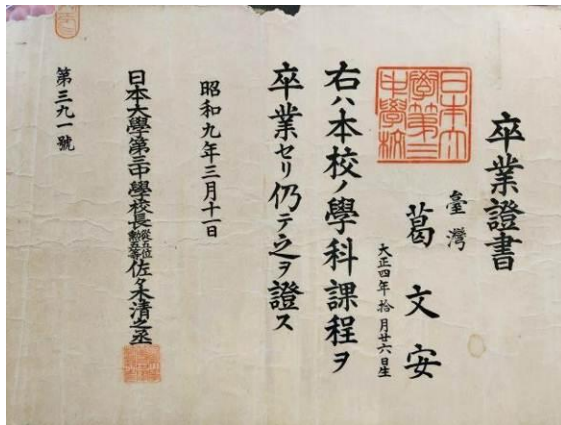 卒業證書
臺灣
葛文安
大正四年拾月廿六日生
日本大
學第三
中學校
右ハ本校ノ學科課程ヲ
卒業セリ仍テ之ヲ證ス
昭和九年三月十一日
日本大學第三中學校長從五位勲五等佐々木清之丞
第三九一號